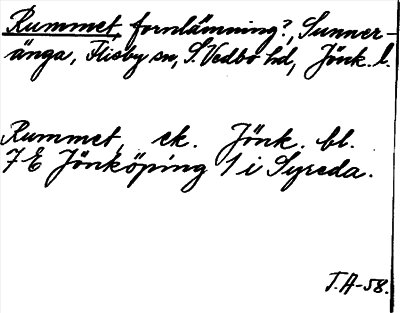 Rummet, fornlämning?, Sunner-
änga, Flisby sn, S. Vedbo hd, Jönk. l.
Rummet, ek. Jönk. bl.
7 E Jönköping 1 i Syreda.
T.A-58.